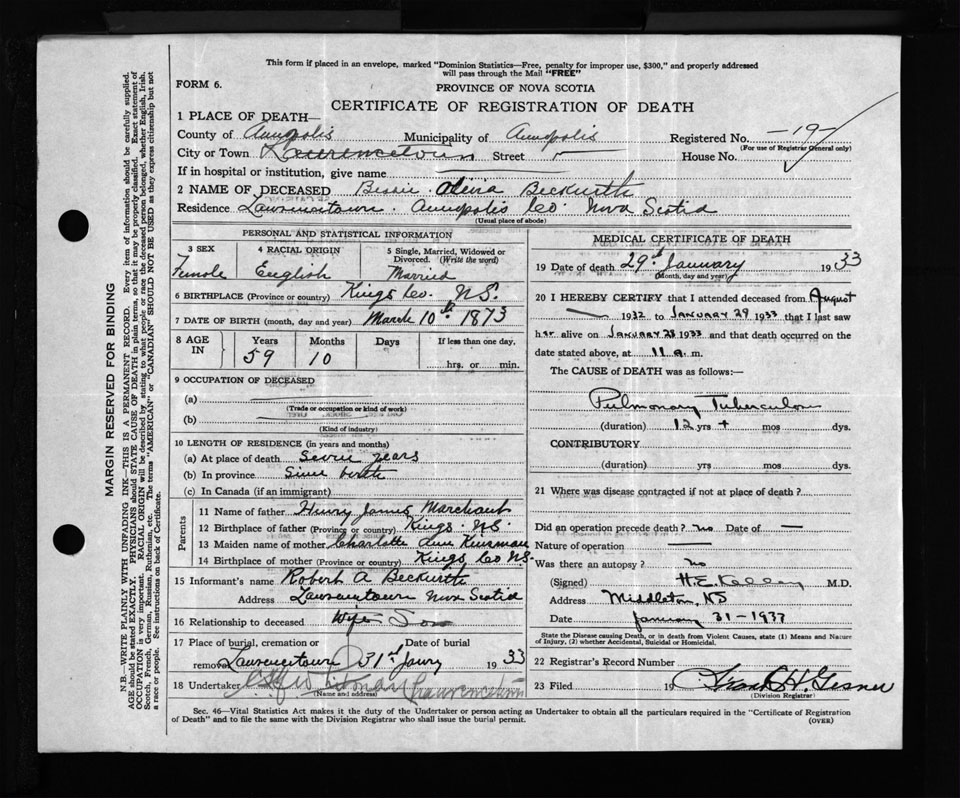 This form if placed in an envelope, marked "Dominion Statistics—Free, penalty for improper use, $300," and properly addressed
will pass through the Mail "FREE"
FORM 6.
PROVINCE OF NOVA SCOTIA
CERTIFICATE OF REGISTRATION OF DEATH
1 PLACE OF DEATH—
County of Annapolis Municipality of Annapolis Registered No. -19-
(For use of Registrar General only)
City or Town Lawrencetown Street House No.
If in hospital or institution, give name
2 NAME OF DECEASED Bessie Olivia Beckwith
Residence Lawrencetown Annapolis Co. Nova Scotia
(Usual place of abode)
PERSONAL AND STATISTICAL INFORMATION
3 SEX 4 RACIAL ORIGIN 5 Single, Married, Widowed or
Divorced. (Write the word)
Female English Married
6 BIRTHPLACE (Province or country) Kings Co. N.S.
7 DATE OF BIRTH (month, day and year) March 10th 1873
8 AGE IN Years Months Days If less than one day,
59 10 hrs. or min.
9 OCCUPATION OF DECEASED
(a)
(Trade or occupation or kind of work)
(b)
(Kind of industry)
10 LENGTH OF RESIDENCE (in years and months)
(a) At place of death Seven years
(b) In province Since birth
(c) In Canada (if an immigrant)
Parents
11 Name of father Henry James Marchant
12 Birthplace of father (Province or country) Kings N.S.
13 Maiden name of mother Charlotte Ann Kinsman
14 Birthplace of mother (Province or country) Kings Co N.S.
15 Informant's name Robert A Beckwith
Address Lawrencetown Nova Scotia
16 Relationship to deceased Wife Son
17 Place of burial, cremation or Date of burial
removal Lawrencetown 31st Jany 1933
18 Undertaker Lawrencetown
(Name and address)
MEDICAL CERTIFICATE OF DEATH
19 Date of death 29th January 1933
(Month, day and year)
20 I HEREBY CERTIFY that I attended deceased from August
1932 to January 29 1933 that I last saw
her alive on January 28 1933 and that death occurred on the
date stated above, at 11 a. m.
The CAUSE of DEATH was as follows:
Pulmonary Tuberculosis
(duration) 12 yrs + mos dys.
CONTRIBUTORY
(duration) yrs mos dys.
21 Where was disease contracted if not at place of death?
Did an operation precede death? no Date of —
Nature of operation —
Was there an autopsy? no
(Signed) H.E. Kelley M.D.
Address Middleton, NS
Date January 31-1933
State the Disease causing Death, or in death from Violent Causes, state (1) Means and Nature
of Injury, (2) whether Accidental, Suicidal or Homicidal.
22 Registrar's Record Number
23 Filed 19 Frank H. Gesner
(Division Registrar)
Sec. 46—Vital Statistics Act makes it the duty of the Undertaker or person acting as Undertaker to obtain all the particulars required in the "Certificate of Registration
of Death" and to file the same with the Division Registrar who shall issue the burial permit.
(OVER)
MARGIN RESERVED FOR BINDING
N.B.—WRITE PLAINLY WITH UNFADING INK—THIS IS A PERMANENT RECORD. Every item of information should be carefully supplied.
AGE should be stated EXACTLY. PHYSICIANS should STATE CAUSE OF DEATH in plain terms, so that it may be properly classified. Exact statement of
OCCUPATION is very important. RACIAL ORIGIN will be described by stating to what people or race the deceased person belonged, whether English, Irish,
Scotch, French, German, Russian, Ruthenian, etc. The terms "AMERICAN" or "CANADIAN" SHOULD NOT BE USED as they express citizenship but not
a race or people. See instructions on back of Certificate.